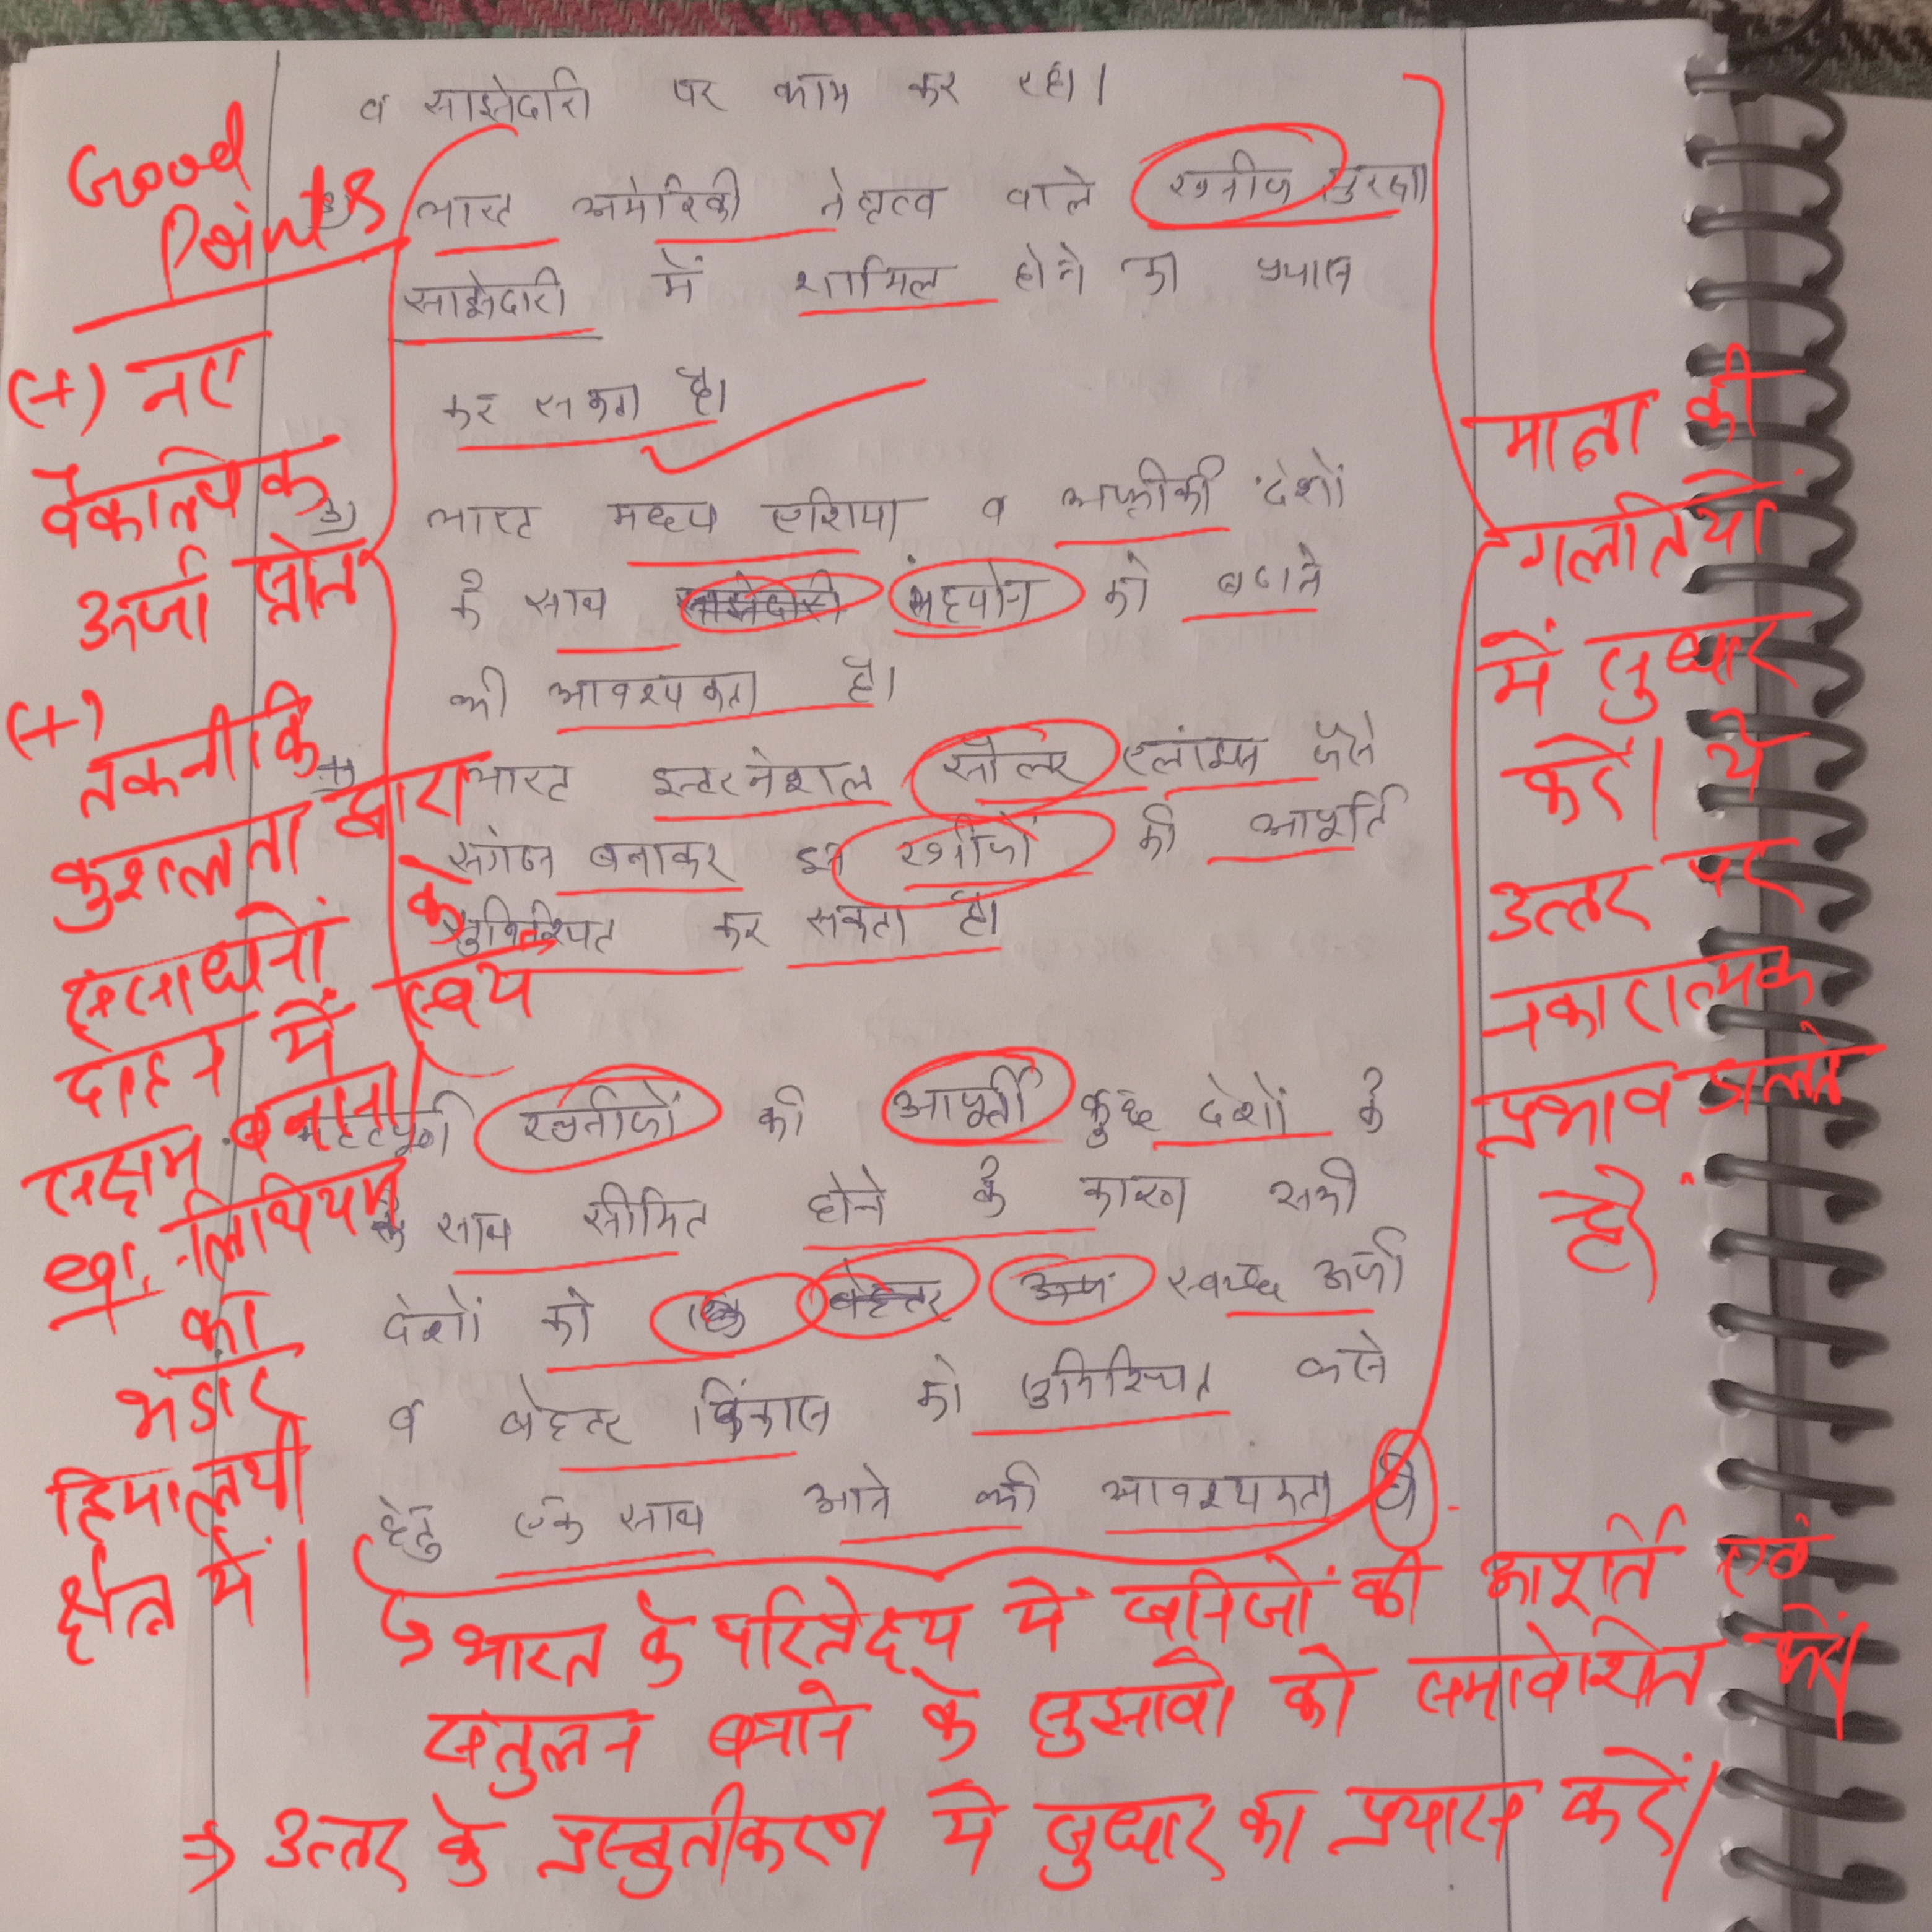 व साझेदारी पर काम कर रहा।
Good
Points
2) भारत अमेरिकी नेतृत्व वाले खनीज सुरक्षा
साझेदारी में शामिल होने का प्रयास
कर सकता है।
3) भारत मध्य एशिया व अफ्रीकी देशों
के साथ साझेदारी सहयोग को बढाने
की आवश्यकता है।
भारत इन्टरनेशनल सोलर एलांयस जैसे
संगठन बनाकर इन खनीजों की आपूर्ति
सुनिश्चित कर सकता है।
महत्वपूर्ण खनीजों की आपूर्ती कुछ देशों के
के साथ सीमित होने के कारण सभी
देशों को बेहतर स्वच्छ ऊर्जा
व बेहतर विकास को सुनिश्चित करने
हेतु एक साथ आने की आवश्यकता है
(+) नए
वैकल्पिक
ऊर्जा स्रोत
(+)
तकनीकि
कुशलता द्वारा
संसाधनों के
दोहन में स्वयं
सक्षम बनाना
eg. लिथियम
का
भंडार
हिमालयी
क्षेत्र में।
मात्रा की
गलतियों
में सुधार
करें। ये
उत्तर पर
नकारात्मक
प्रभाव डालते
हैं
↳ भारत के परिप्रेक्ष्य में खनिजों की आपूर्ति एवं
संतुलन बनाने के सुझावों को समावेशित करें।
⇒ उत्तर के प्रस्तुतीकरण में सुधार का प्रयास करें।